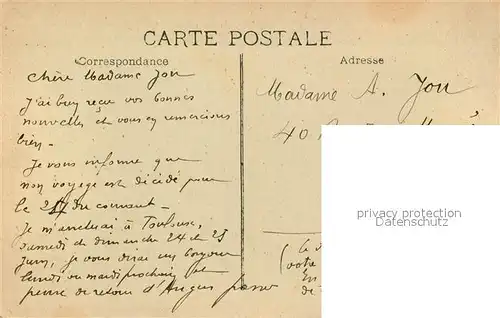 CARTE POSTALE
Correspondance
Adresse
Chère Madame Jou
J'ai bien reçu vos bonnes
nouvelles et vous en remercions
bien -
Je vous informe que
mon voyage est décidé pour
le du courant -
Je m'arrêterai à Toulouse,
samedi et dimanche 24 et 25
Juin, je vous dirai un bonjour
lundi ou mardi prochain et
de retour d'
Madame A. Jou
40
privacy protection
Datenschutz